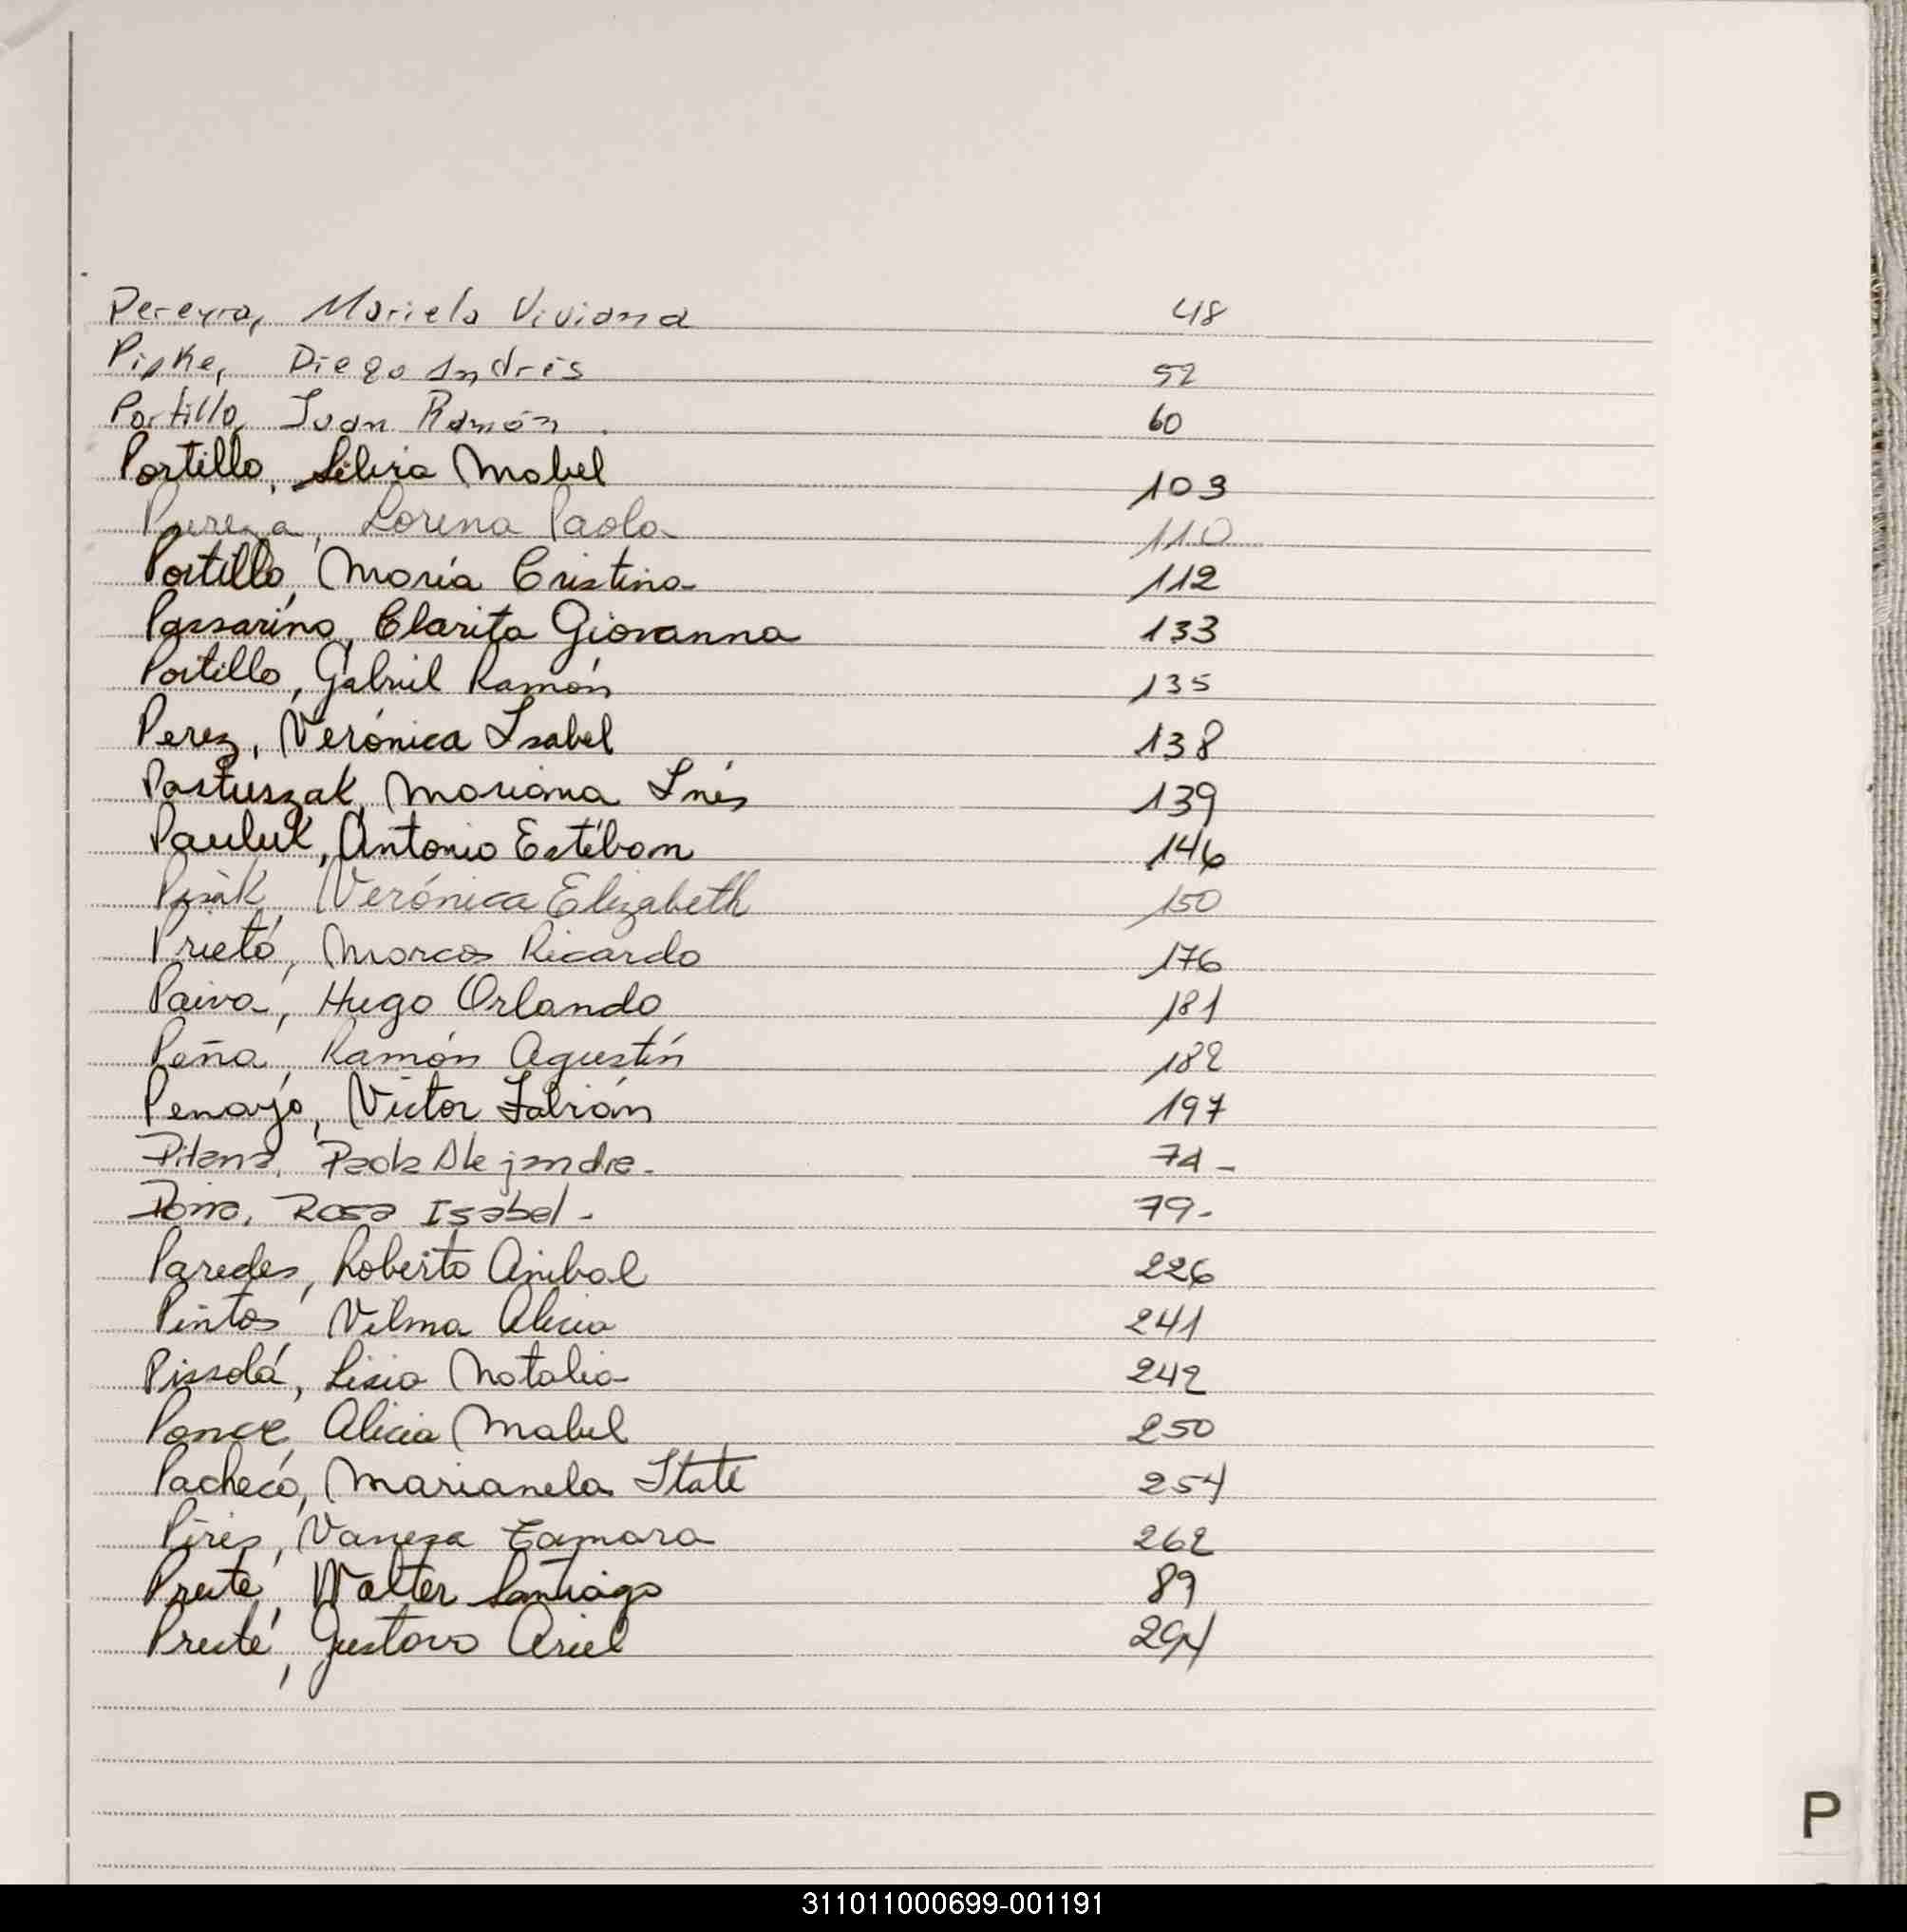 Pereyra, Mariela Viviana 48
Piske, Diego Andrés 52
Portillo, Juan Ramón 60
Portillo, Silvia Mabel 103
Pereyra, Lorena Paola 110
Portillo, María Cristina 112
Passarino, Clarita Giovanna 133
Portillo, Gabriel Ramón 135
Perez, Verónica Isabel 138
Pastuszak, Mariana Inés 139
Pauluk, Antonio Estéban 146
Verónica Elizabeth 150
Prieto, Marcos Ricardo 176
Paiva, Hugo Orlando 181
Peña, Ramón Agustín 182
Penayo, Victor Fabián 197
Pitana, Paola Alejandra. 74-
Rosa Isabel. 79-
Paredes, Roberto Anibal 226
Pintos Vilma Alicia 241
Pissolá, Lisia Natalia 242
Ponce, Alicia Mabel 250
Pacheco, Marianela Itatí 254
Pires, Vanesa Tamara 262
Preute, Walter Santiago 89
Gustavo Ariel 294
P
311011000699-001191